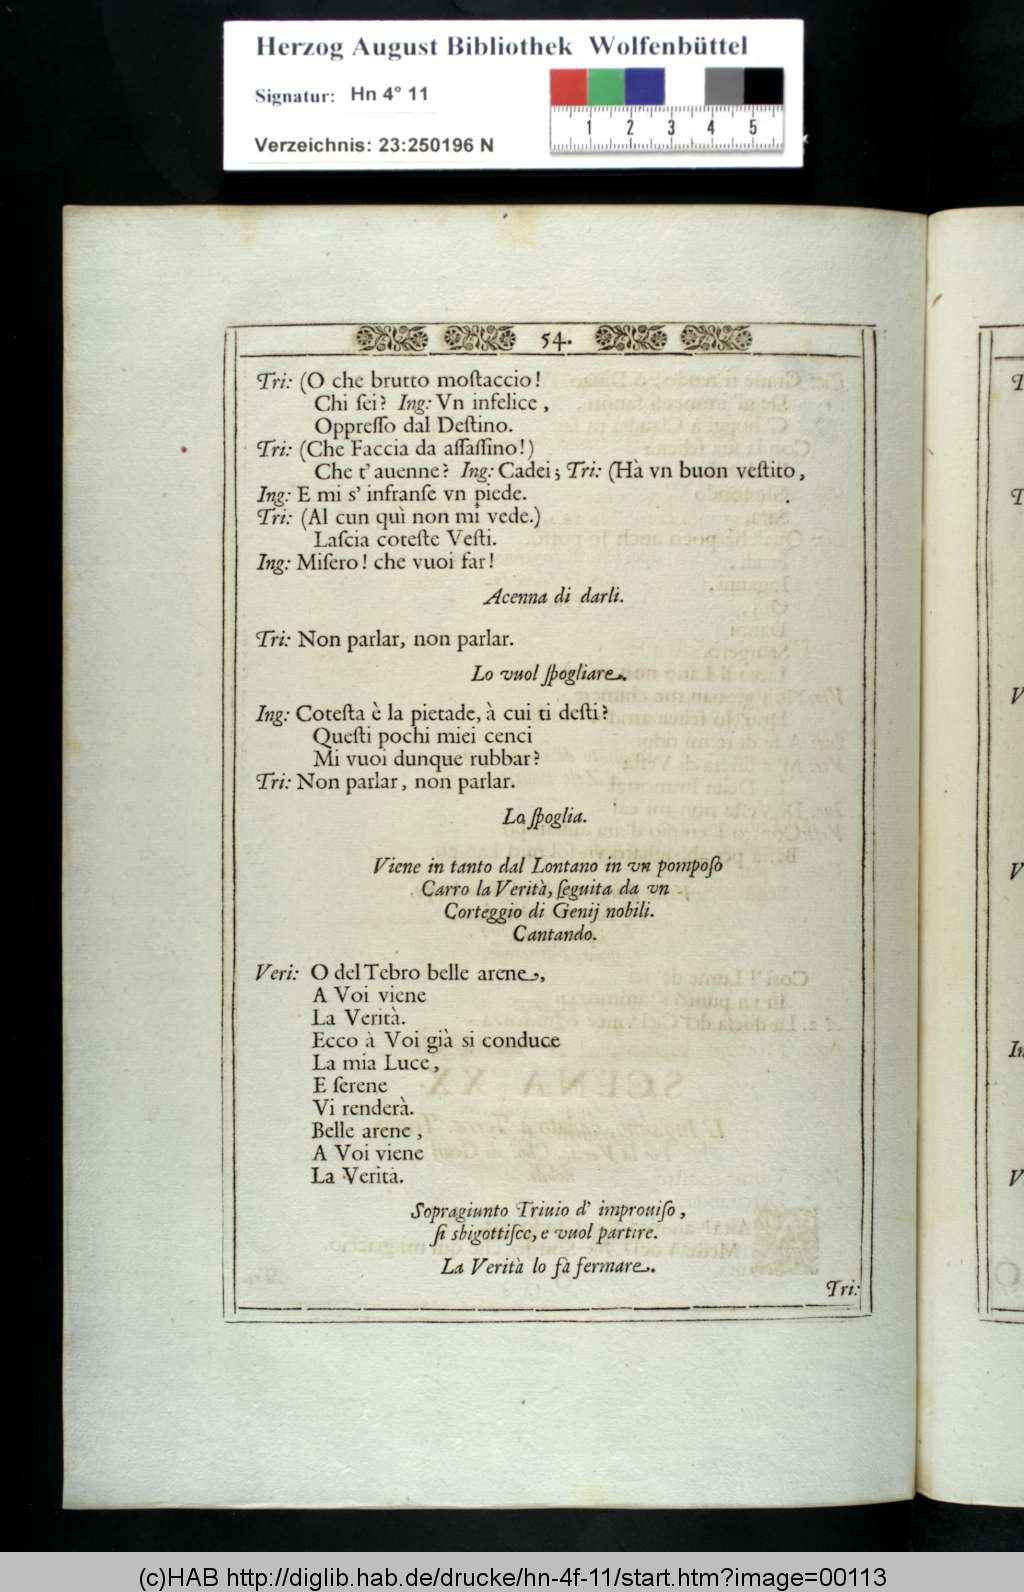 Herzog August Bibliothek Wolfenbüttel
Signatur: Hn 4° 11
Verzeichnis: 23:250196 N
1 2 3 4 5
54.
Tri: (O che brutto moſtaccio!
Chi ſei? Ing: Vn infelice,
Oppreſſo dal Deſtino.
Tri: (Che Faccia da aſſaſſino!)
Che t'auenne? Ing: Cadei; Tri: (Hà vn buon veſtito,
Ing: E mi s' infranſe vn piede.
Tri: (Al cun quì non mi vede.)
Laſcia coteſte Veſti.
Ing: Miſero! che vuoi far!
Acenna di darli.
Tri: Non parlar, non parlar.
Lo vuol ſpogliare.
Ing: Coteſta è la pietade, à cui ti deſti?
Queſti pochi miei cenci
Mi vuoi dunque rubbar?
Tri: Non parlar, non parlar.
Lo ſpoglia.
Viene in tanto dal Lontano in vn pompoſo
Carro la Verità, ſeguita da vn
Corteggio di Genij nobili.
Cantando.
Veri: O del Tebro belle arene,
A Voi viene
La Verità.
Ecco à Voi già si conduce
La mia Luce,
E ſerene
Vi renderà.
Belle arene,
A Voi viene
La Verità.
Sopragiunto Triuio d' improuiſo,
ſi sbigottiſce, e vuol partire.
La Verità lo fà fermare.
Tri:
(c)HAB http://diglib.hab.de/drucke/hn-4f-11/start.htm?image=00113